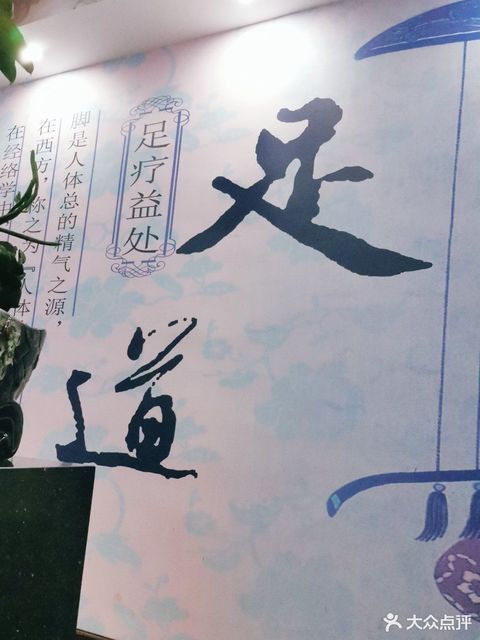 足道
足疗益处
脚是人体总的精气之源，
在西方，称之为“人体
在经络学中
大众点评